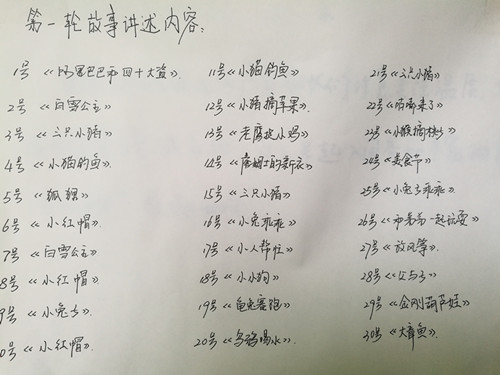 第一轮故事讲述内容:
1号《阿里巴巴和四十大盗》
2号《白雪公主》
3号《三只小猪》
4号《小猫钓鱼》
5号《狐狸》
6号《小红帽》
7号《白雪公主》
8号《小红帽》
9号《小兔子》
0号《小红帽》
11号《小猫钓鱼》
12号《小猪摘苹果》
13号《老鹰捉小鸡》
14号《詹姆士的新衣》
15号《三只小猪》
16号《小兔乖乖》
17号《小人帮忙》
18号《小小狗》
19号《龟兔赛跑》
20号《乌鸦喝水》
21号《三只小猪》
22号《来了》
23号《小猴摘桃》
24号《美食节》
25号《小兔子乖乖》
26号《和弟弟一起玩耍》
27号《放风筝》
28号《父与子》
29号《金刚葫芦娃》
30号《大章鱼》